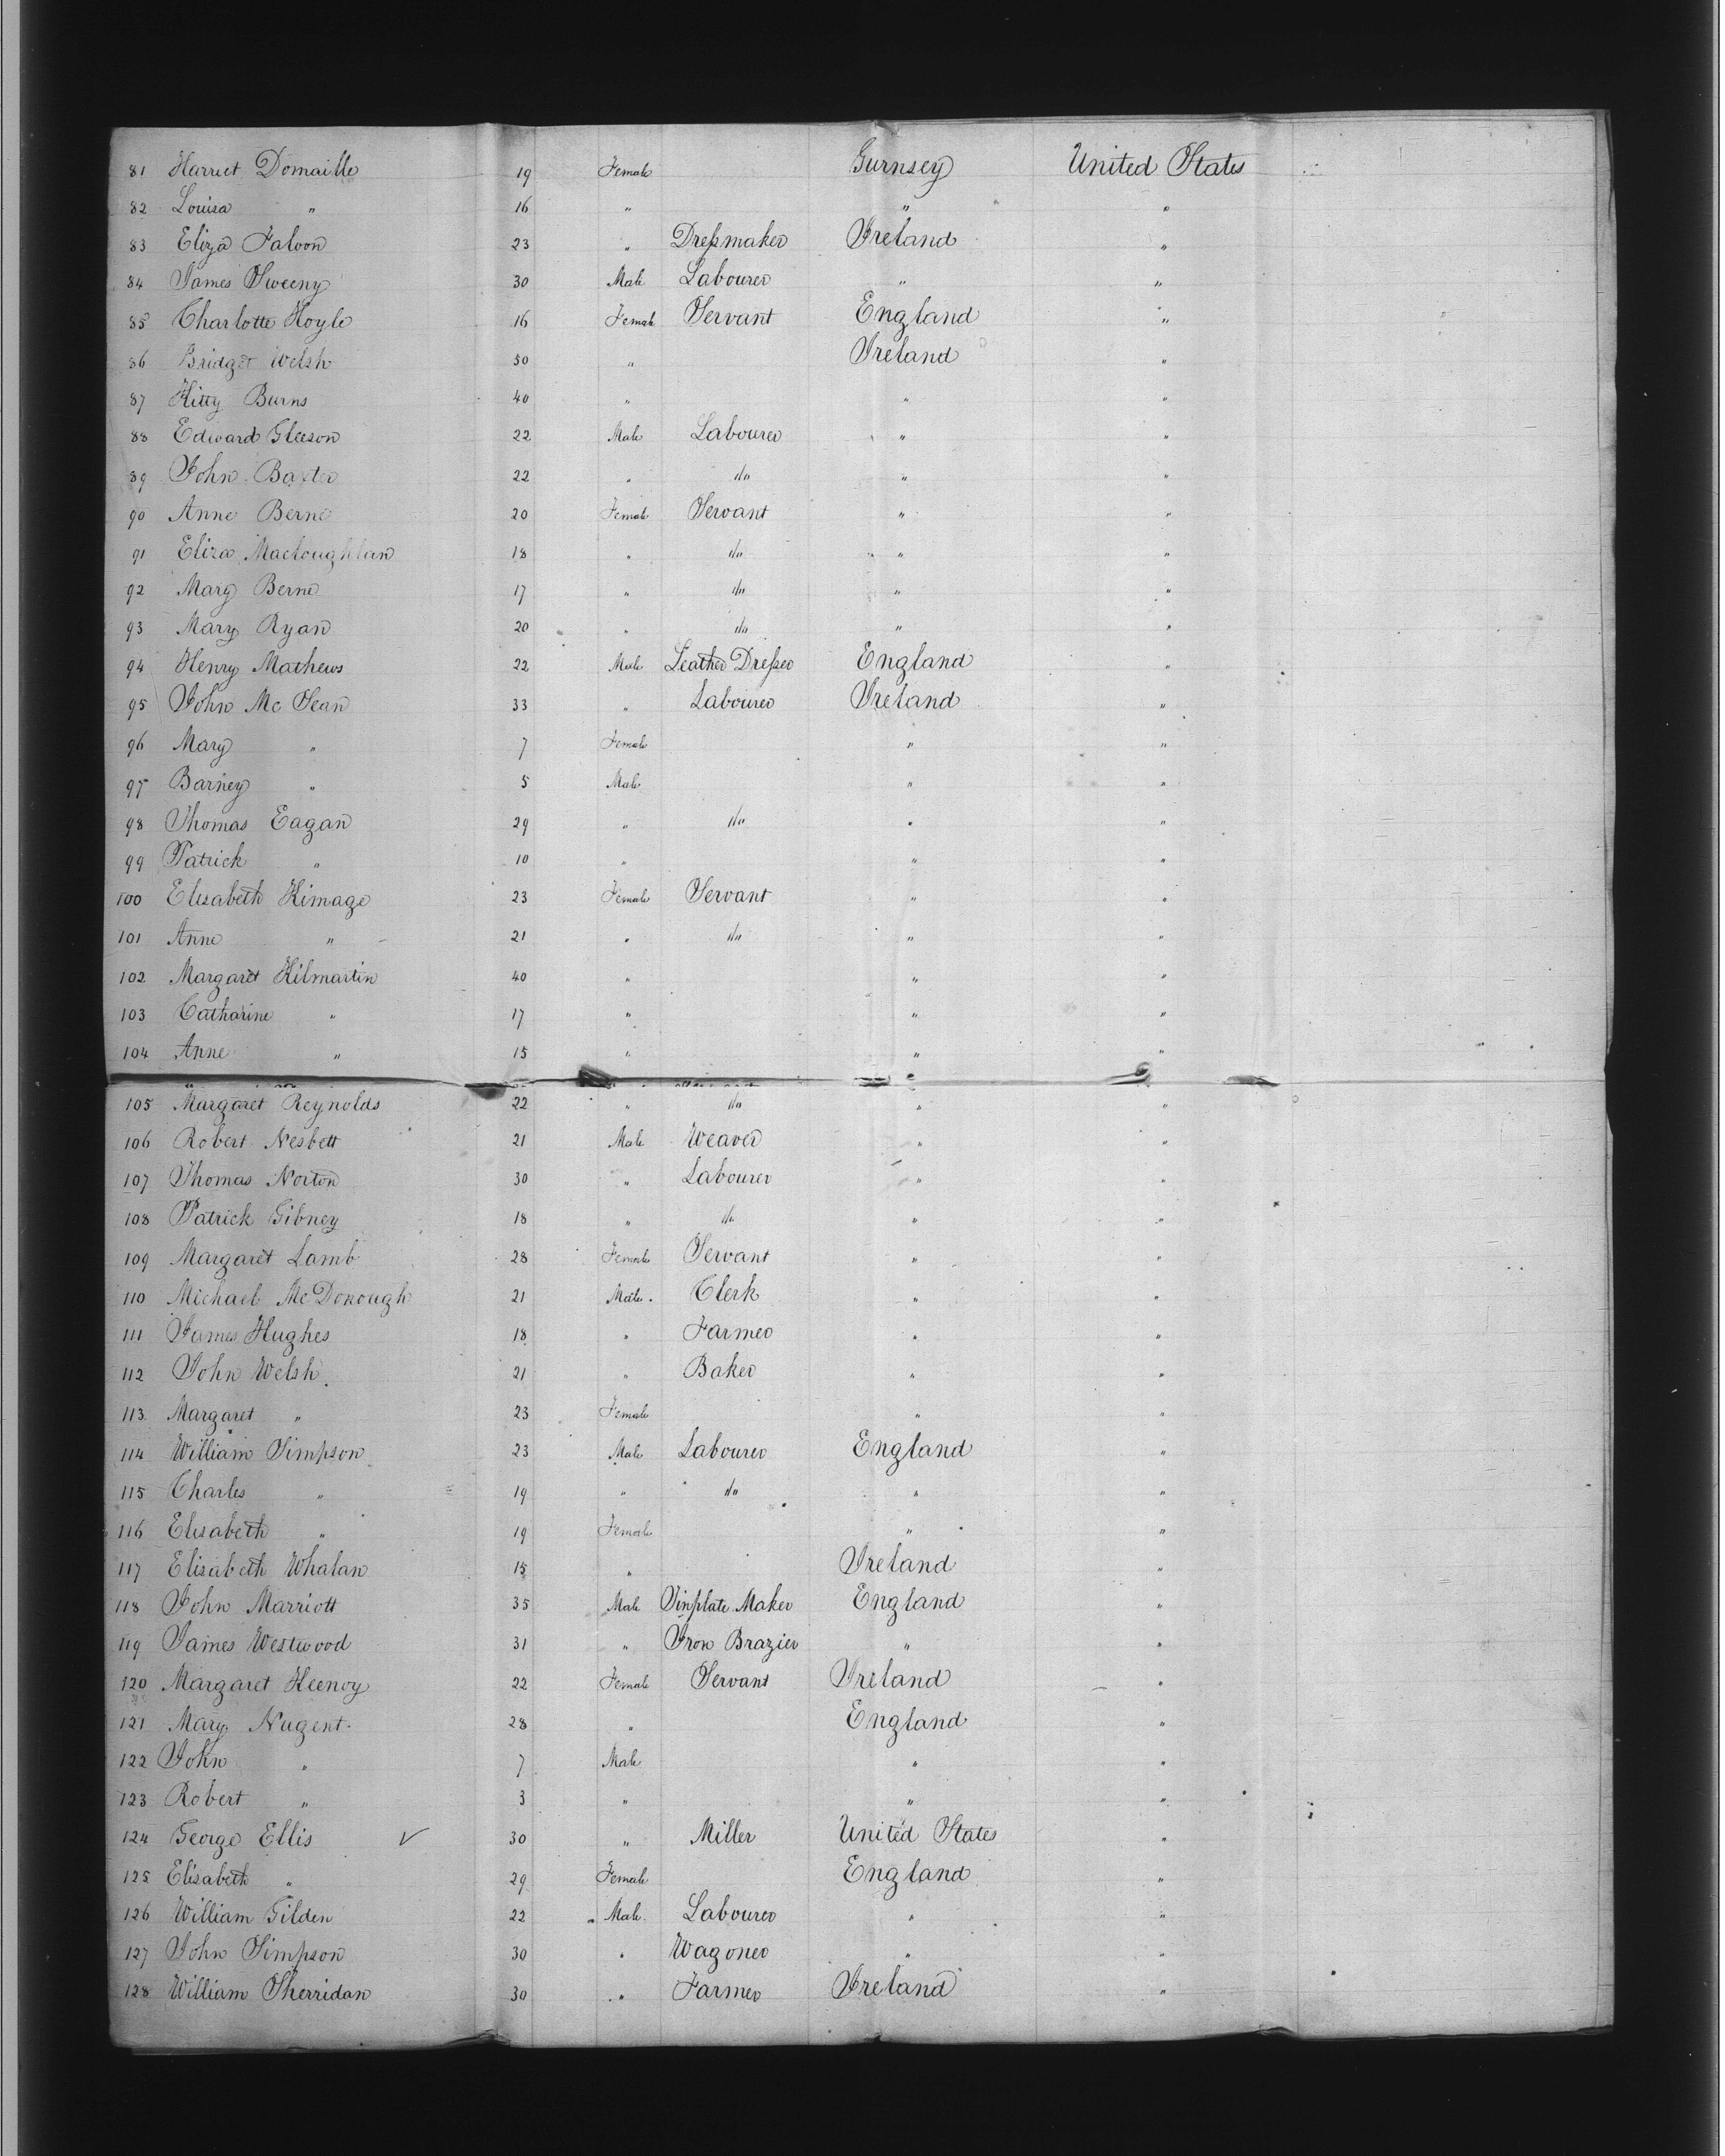 81 Harriet Domaille 19 Female Gurnsey United States
82 Louisa " 16 " " "
83 Eliza Faloon 23 " Dressmaker Ireland "
84 James Sweeny 30 Male Labourer " "
85 Charlotte Hoyle 16 Female Servant England "
86 Bridget Welsh 50 " Ireland "
87 Kitty Burns 40 " " "
88 Edward Gleeson 22 Male Labourer " "
89 John Baxter 22 " do " "
90 Anne Berne 20 Female Servant " "
91 Eliza Macloughlan 18 " do " "
92 Marg Berne 17 " do " "
93 Mary Ryan 20 " do " "
94 Henry Mathews 22 Male Leather Dresser England "
95 John Mc Sean 33 " Labourer Ireland "
96 Mary " 7 Female " "
97 Barney " 5 Male " "
98 Thomas Eagan 29 " do " "
99 Patrick " 10 " " "
100 Elisabeth Kimage 23 Female Servant " "
101 Anne " 21 " do " "
102 Margaret Kilmartin 40 " " "
103 Catharine " 17 " " "
104 Anne " 15 " " "
105 Margaret Reynolds 22 " do " "
106 Robert Nesbett 21 Male Weaver " "
107 Thomas Norton 30 " Labourer " "
108 Patrick Gibney 18 " do " "
109 Margaret Lamb 28 Female Servant " "
110 Michael McDonough 21 Male Clerk " "
111 James Hughes 18 " Farmer " "
112 John Welsh 21 " Baker " "
113 Margaret " 23 Female " "
114 William Simpson 23 Male Labourer England "
115 Charles " 19 " do " "
116 Elisabeth " 19 Female " "
117 Elisabeth Whalan 15 " Ireland "
118 John Marriott 35 Male Tinplate Maker England "
119 James Westwood 31 " Iron Brazier " "
120 Margaret Keenoy 22 Female Servant Ireland "
121 Mary Nugent 28 " England "
122 John " 7 Male " "
123 Robert " 3 " " "
124 George Ellis ✓ 30 " Miller United States "
125 Elisabeth " 29 Female England "
126 William Gilden 22 Male Labourer " "
127 John Simpson 30 " Wagoner " "
128 William Sherridan 30 " Farmer Ireland "